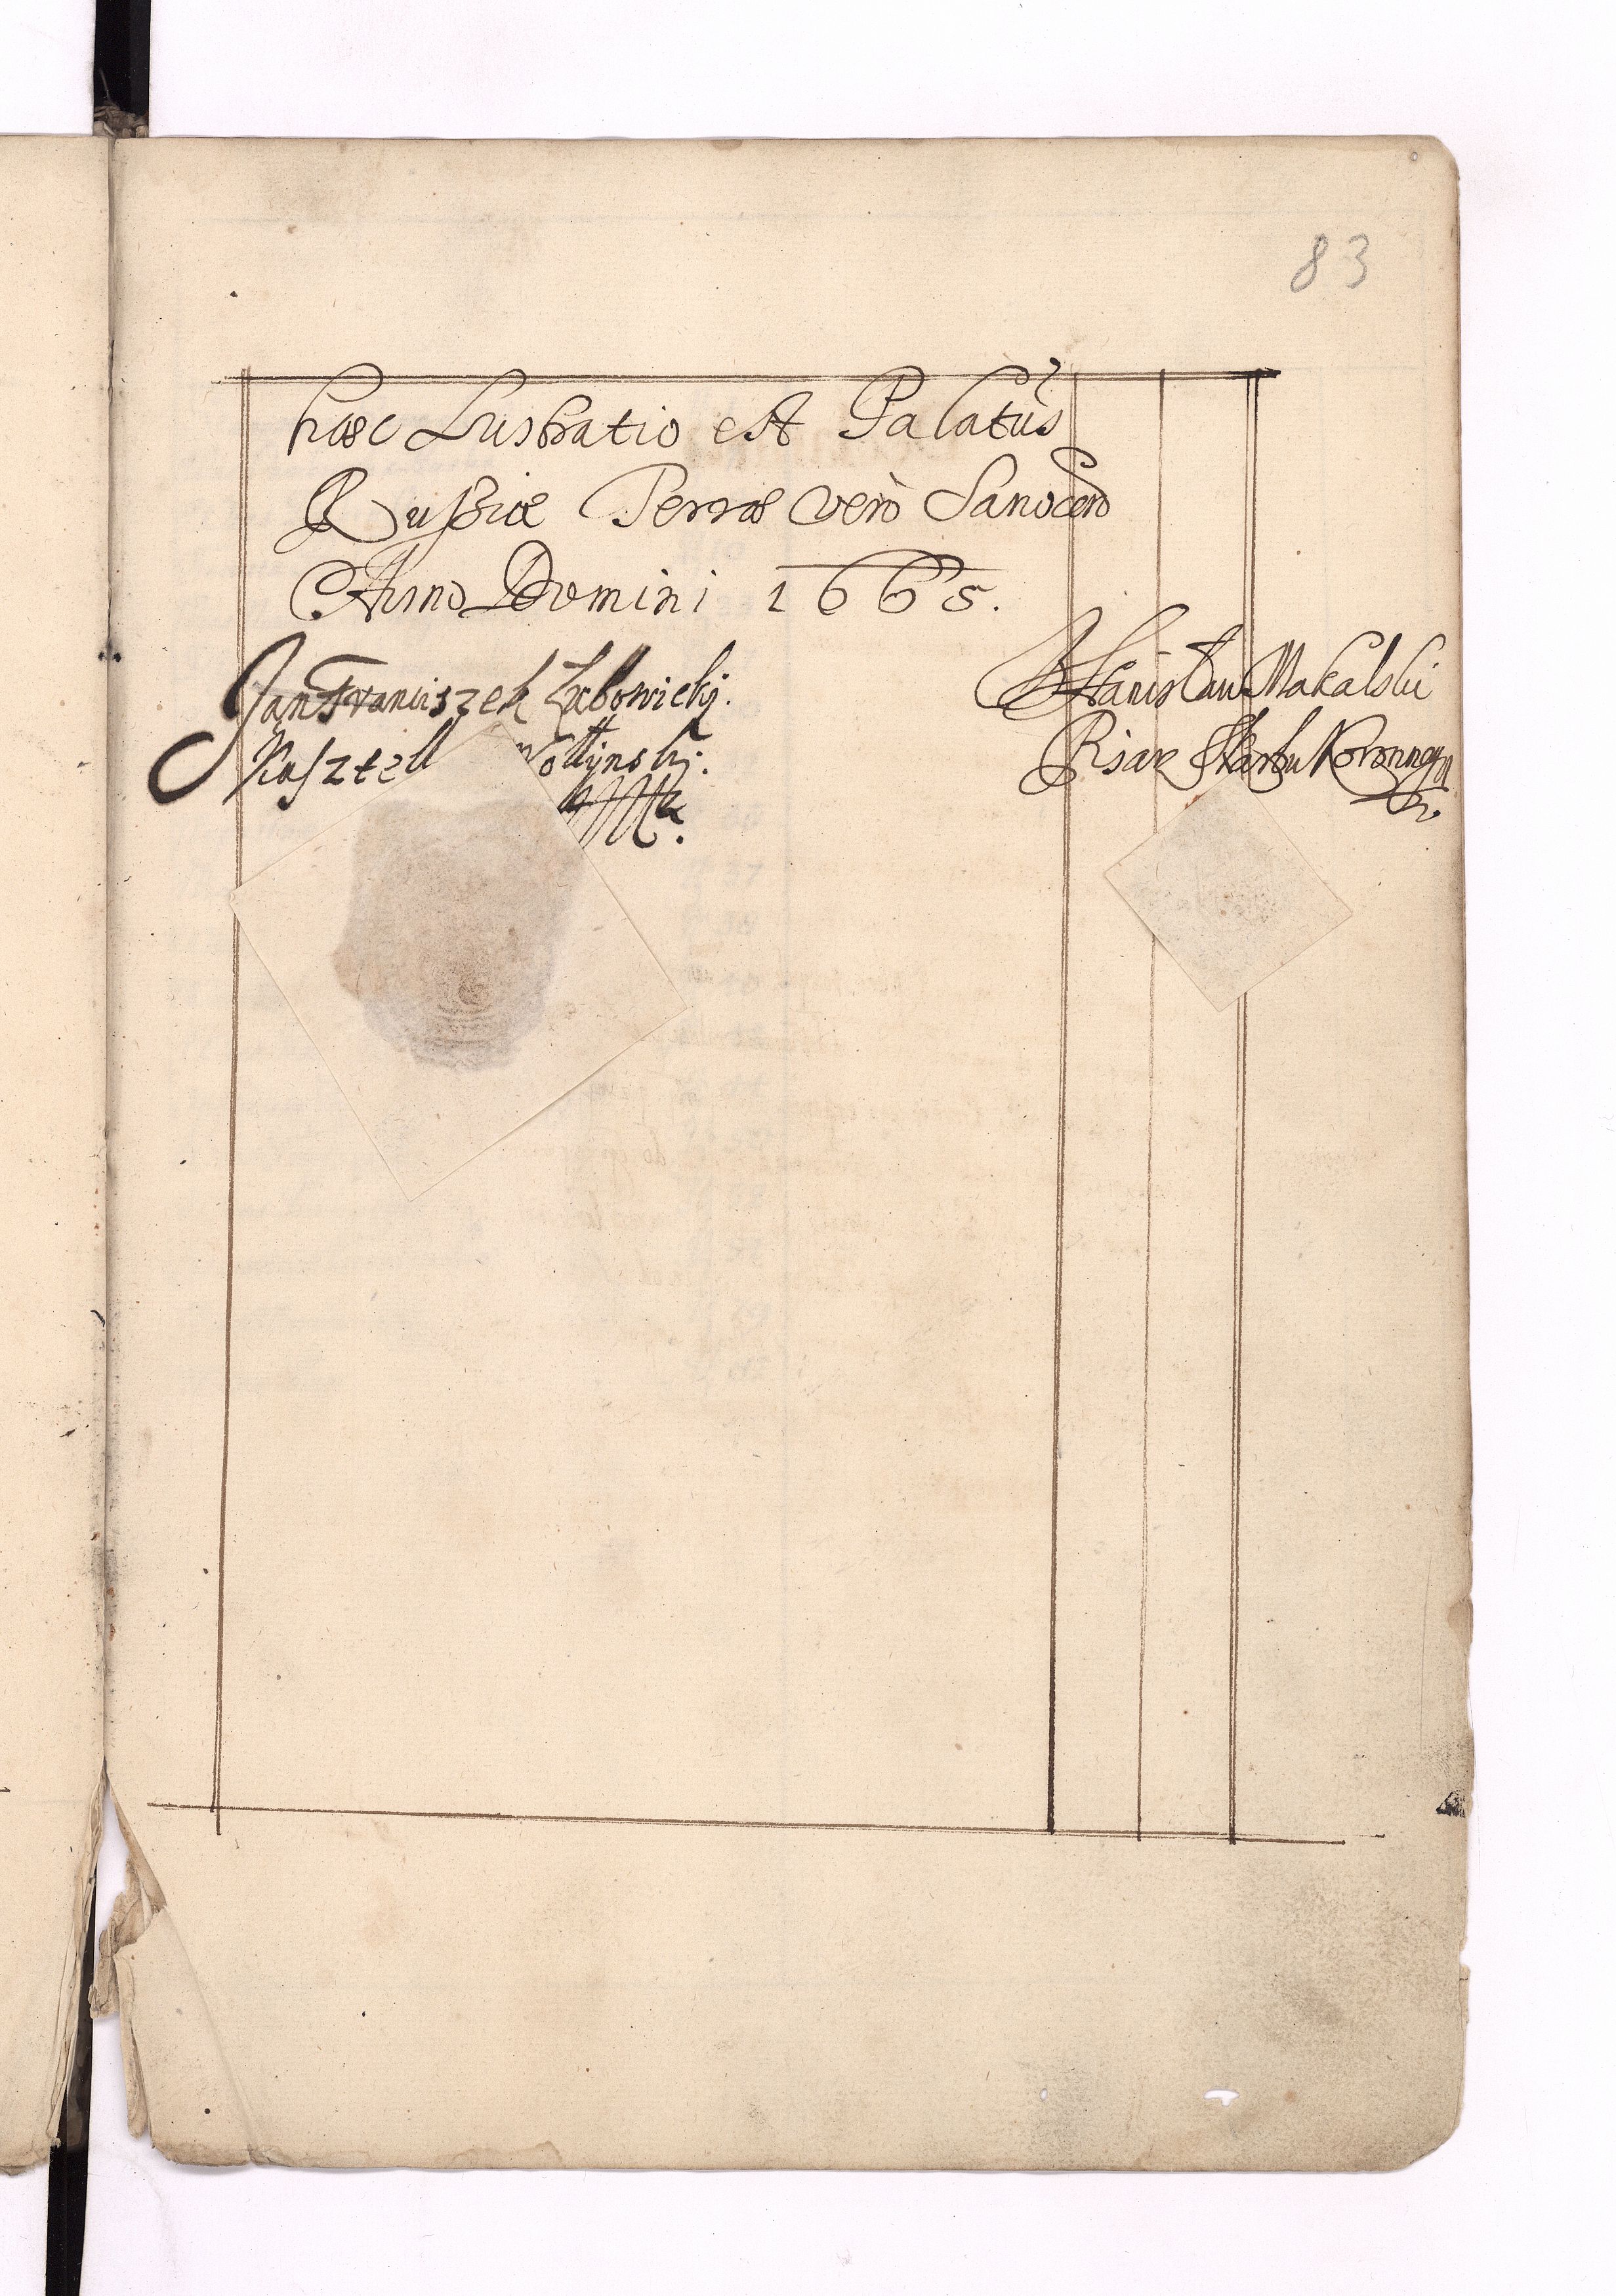 83
hæc Lustratio est Palatûs
Rußiæ Terræ verò Sanocen
Anno Domini 1665.
Jan Franciszek Lubowicky.
Kasztell Wollynsky.
Stanisław Makalski
Pisarz Skarbu Koronnego